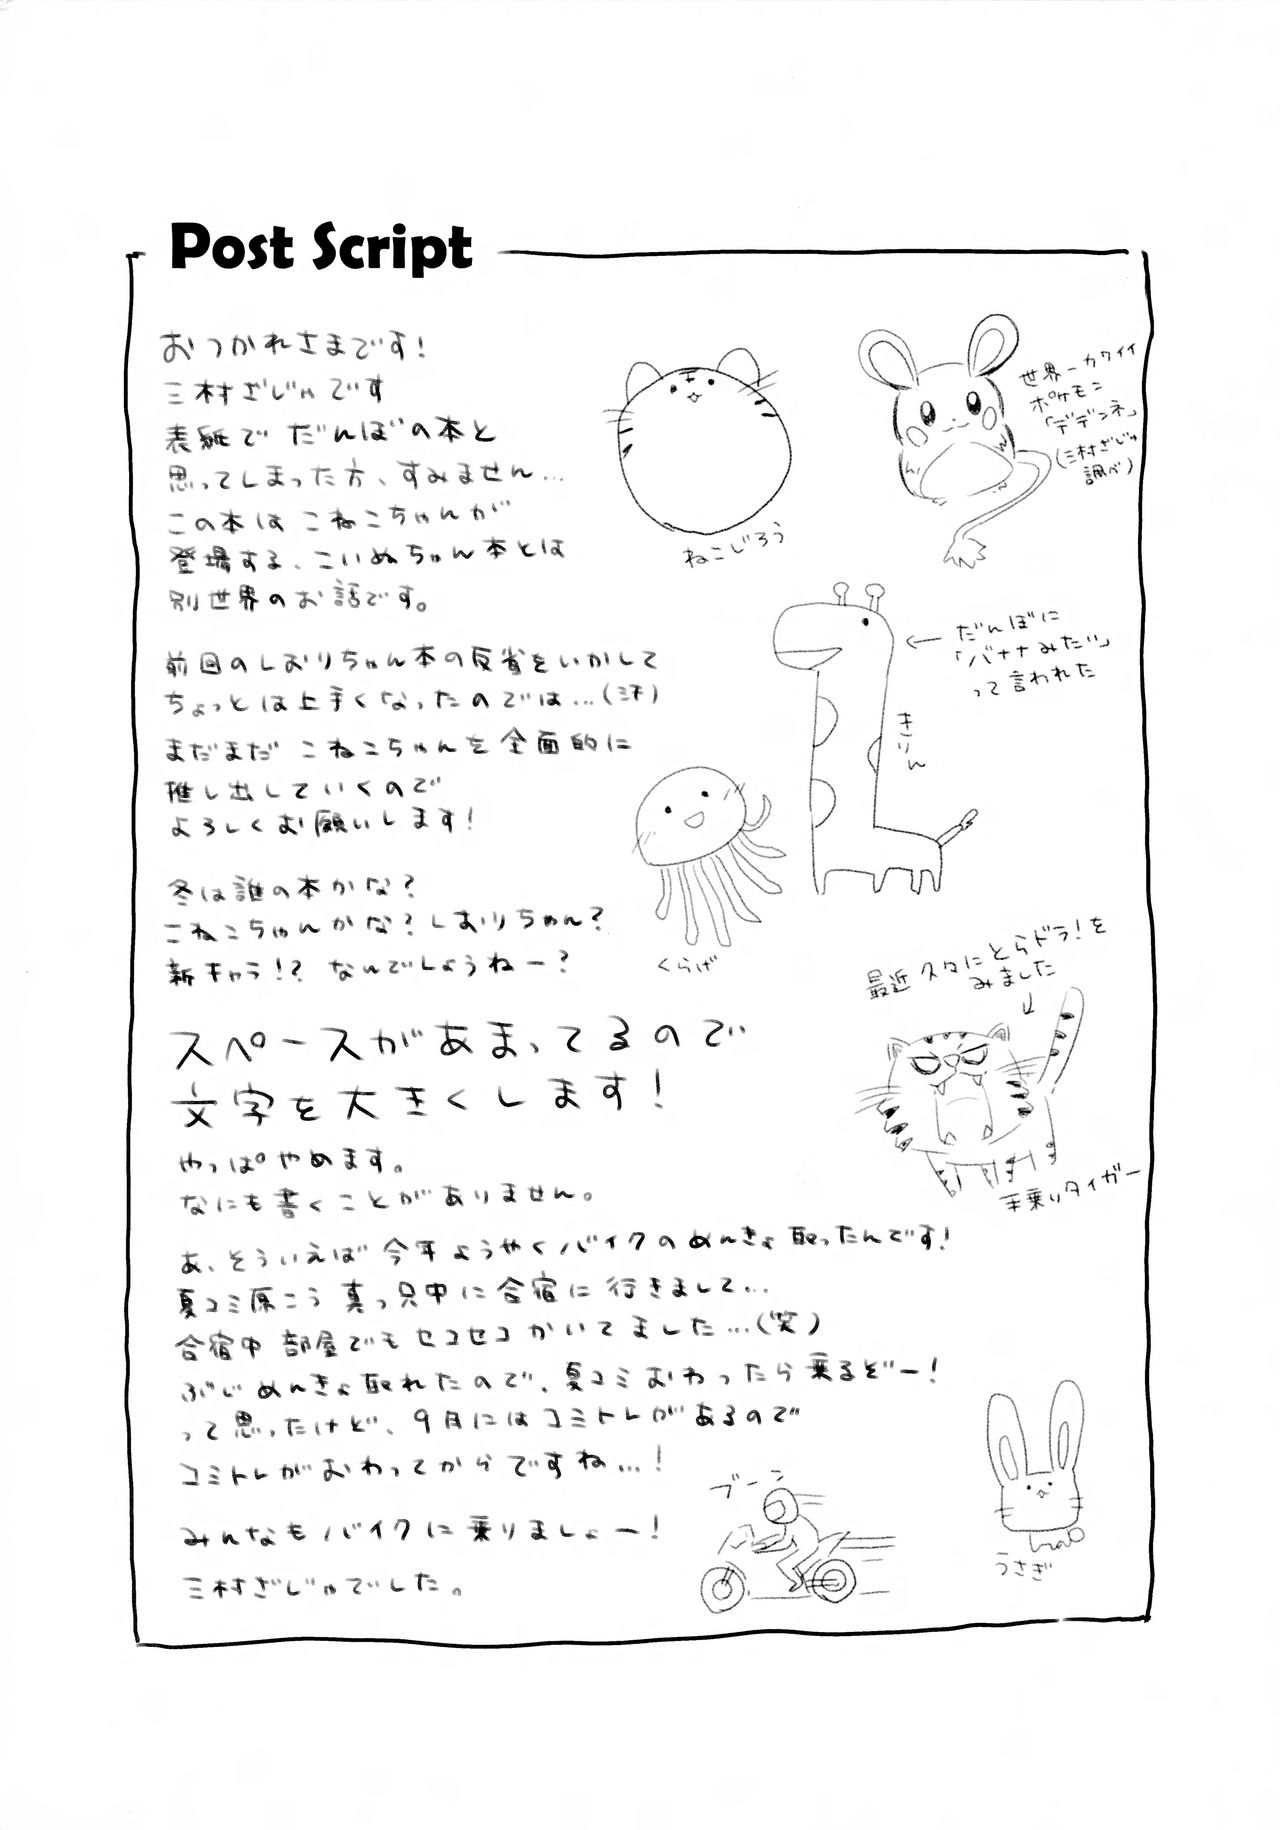 Post Script
おつかれさまです!
三村ざじゅです
表紙で だんぼの本と
思ってしまった方、すみません…
この本は こねこちゃんが
登場する、こいぬちゃん本とは
別世界のお話です。
前回のしおりちゃん本の反省をいかして
ちょっとは上手くなったのでは…(汗)
まだまだ こねこちゃんを 全面的に
推し出していくので
よろしくお願いします!
冬は誰の本かな?
こねこちゃんかな?しおりちゃん?
新キャラ!? なんでしょうねー?
スペースがあまってるので
文字を大きくします!
やっぱやめます。
なにも書くことがありません。
あ、そういえば 今年ようやくバイクのめんきょ取ったんです!
夏コミ原こう 真っ只中に合宿に行きまして…
合宿中 部屋でもセコセコかいてました…(笑)
ぶじめんきょ取れたので、夏コミおわったら乗るぞー!
って思ったけど、9月にはコミトレがあるので
コミトレがおわってからですね…!
みんなもバイクに乗りましょー!
三村ざじゅでした。
ねこじろう
世界一カワイイ
ポケモン
「デデンネ」
(三村ざじゅ
調べ)
← だんぼに
「バナナみたい」
って言われた
きりん
くらげ
最近 久々にとらドラ!を
みました
↓
手乗りタイガー
ブーン
うさぎ